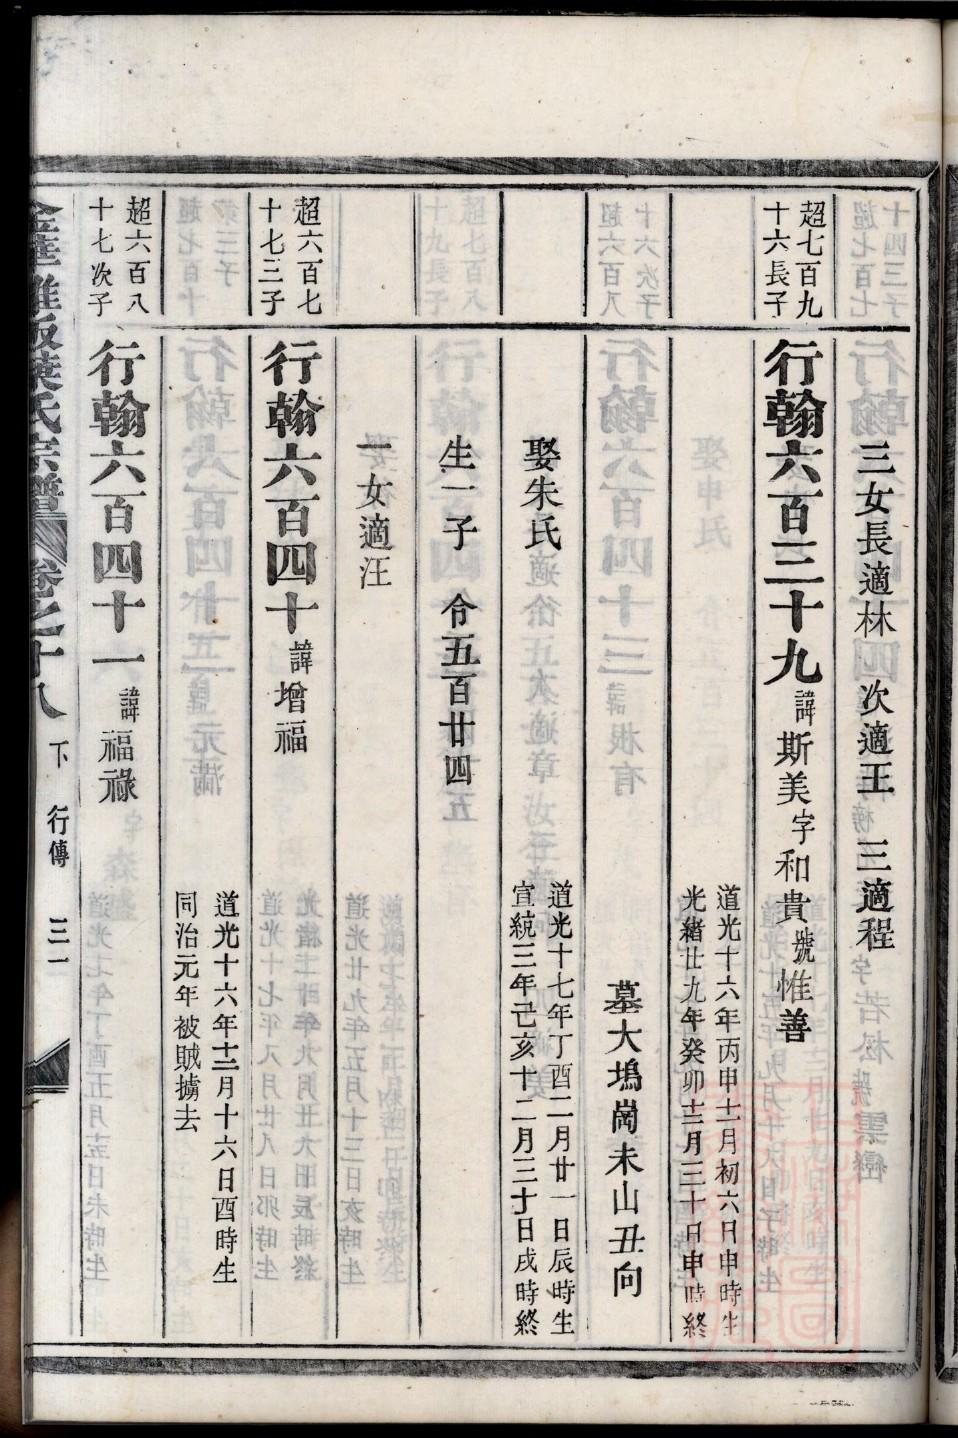 三女長適林 次適王 三適程
超七百九
十六長子
行翰六百三十九 諱斯美字和貴號惟善
道光十六年丙申十二月初六日申時生
光緒廿九年癸卯十二月三十日申時終
墓大塢崗未山丑向
娶朱氏
道光十七年丁酉二月廿一日辰時生
宣統三年己亥十二月三十日戌時終
生一子 令五百廿四
一女適汪
超六百七
十七三子
行翰六百四十 諱增福
道光十六年十二月十六日酉時生
同治元年被賊擄去
超六百八
十七次子
行翰六百四十一 諱福祿
葉氏宗譜 卷之十八 下 行傳 三一